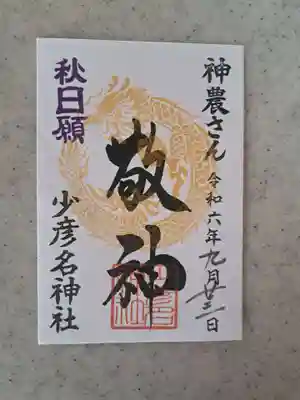 神農さん
令和六年九月廿三日
敬神
秋日願
少彦名神社